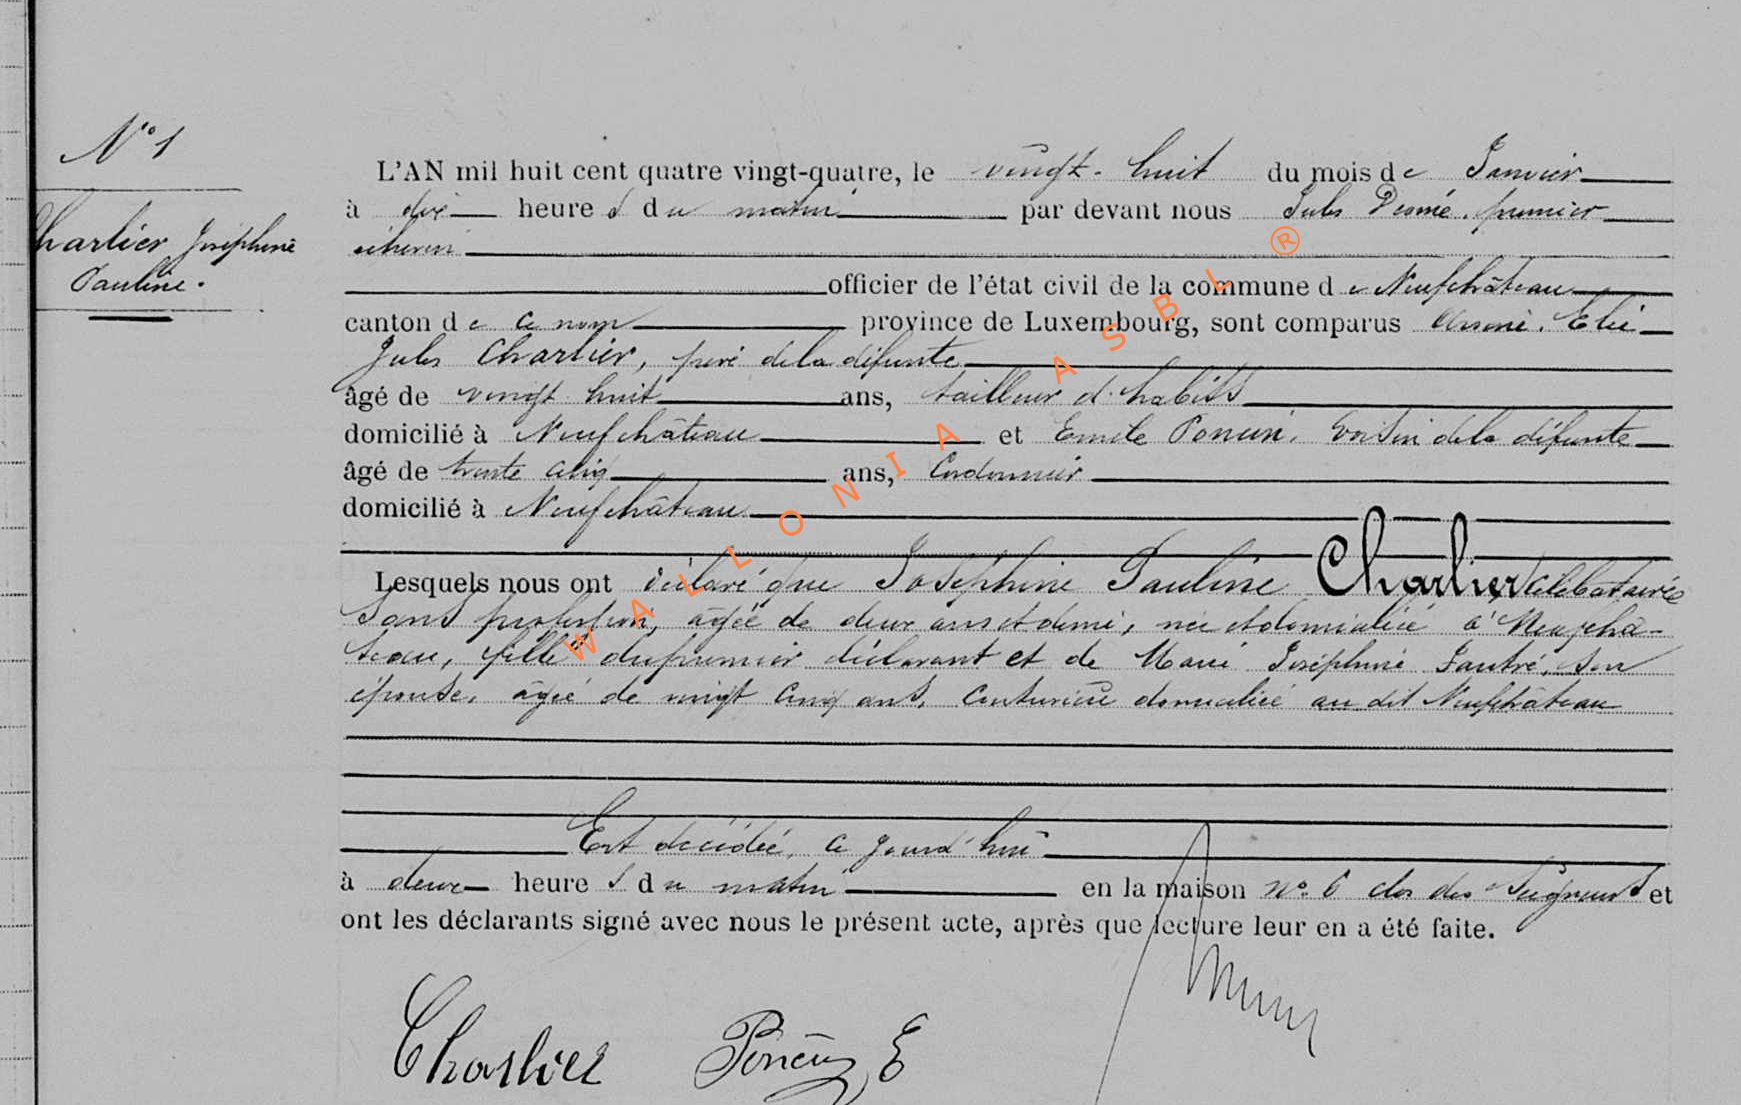 N° 1
Charlier Joséphine
Pauline.
L'AN mil huit cent quatre vingt-quatre, le vingt-huit du mois de Janvier
à dix heures du matin par devant nous Jules premier
échevin
officier de l'état civil de la commune de Neufchâteau
canton de ce nom province de Luxembourg, sont comparus Elie
Jules Charlier, père de la défunte
âgé de vingt huit ans, tailleur d'habits
domicilié à Neufchâteau et Emile Poncin, voisin de la défunte
âgé de trente cinq ans, Cordonnier
domicilié à Neufchâteau
Lesquels nous ont déclaré que Joséphine Pauline Charlier, célibataire
sans profession, âgée de deux ans et demi, née et domiciliée à Neufchâ-
teau, fille du premier déclarant et de Marie Joséphine son
épouse, âgée de vingt cinq ans, Couturière domiciliée au dit Neufchâteau
Est décédée, ce jourd'hui
à deux heures du matin en la maison n° 6 clos des Seigneurs et
ont les déclarants signé avec nous le présent acte, après que lecture leur en a été faite.
Charlier Poncin E
WALLONIA ASBL ®